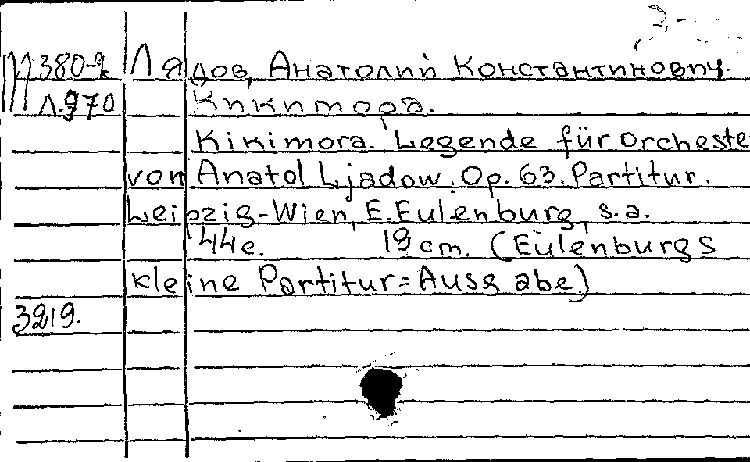 380-2 Лядов, Анатолий Константинович.
Л.970 Кикимора.
Kikimora. Legende für Orcheste
von Anatol Ljadow. Op. 63. Partitur.
Leipzig-Wien, E. Eulenburg, s.a.
44c. 19cm. (Eulenburgs
kleine Partitur=Ausgabe)
3219.